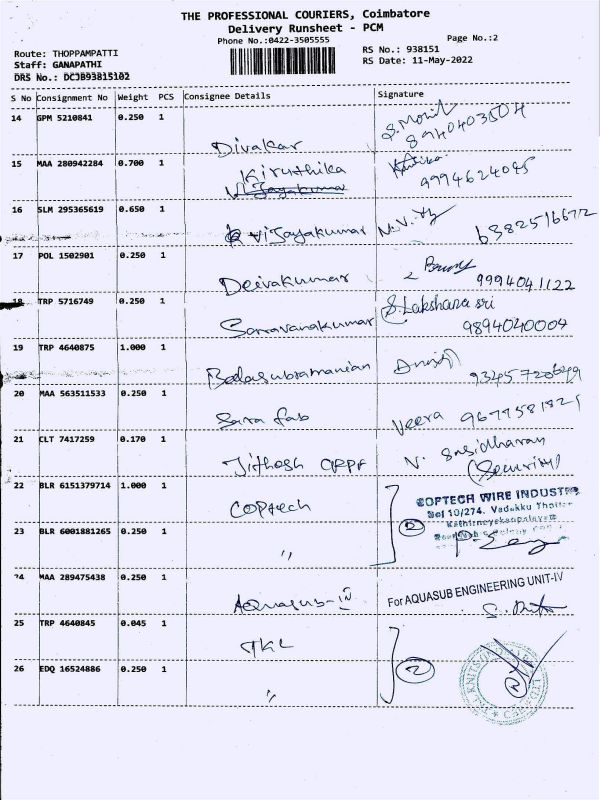 THE PROFESSIONAL COURIERS, Coimbatore
Delivery Runsheet - PCM
Phone No.:0422-3505555
Page No.:2
Route: THOPPAMPATTI
RS No.: 938151
Staff: GANAPATHI
RS Date: 11-May-2022
DRS No.: DCJB93815102
S No Consignment No Weight PCS Consignee Details Signature
14 GPM 5210841 0.250 1 Divakar
15 MAA 280942284 0.700 1 Kiruthika 9994624045
16 SLM 295365619 0.650 1 Vijayakumar 6382516672
17 POL 1502901 0.250 1 Deivakumar 9994041122
18 TRP 5716749 0.250 1 Saravanakumar S. Lakshana sri
9894040004
19 TRP 4640875 1.000 1 Balasubramanian
20 MAA 563511533 0.250 1 Sara fab Veera
21 CLT 7417259 0.170 1 Jithosh N. Sasidharan
(Security)
22 BLR 6151379714 1.000 1 Coptech 2 COPTECH WIRE INDUSTRIES
10/274. Vadakku Thottam
23 BLR 6001881265 0.250 1 "
24 MAA 289475438 0.250 1 Aquasub-IV For AQUASUB ENGINEERING UNIT-IV
25 TRP 4640845 0.045 1 TKL
26 EDQ 16524886 0.250 1 " 2 2